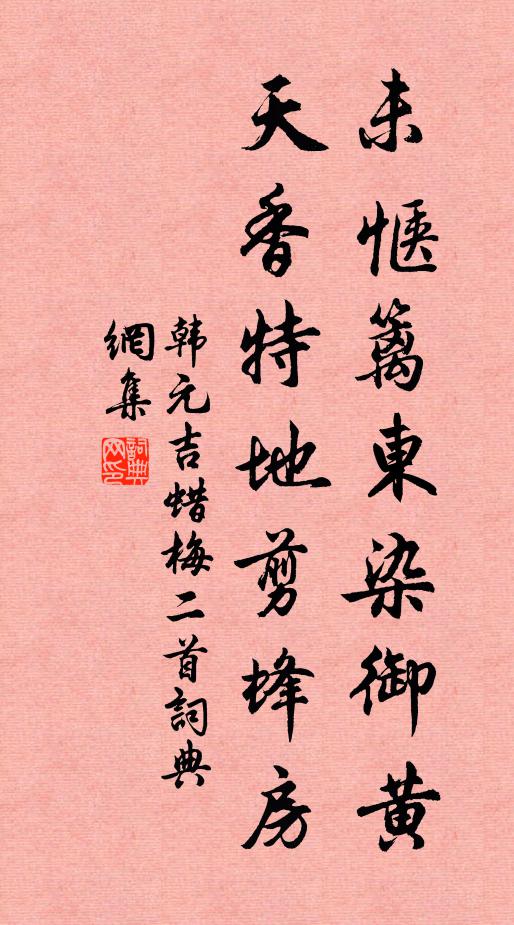 未惬篱東染御黄
天香特地剪蜂房
韩元吉蜡梅二首詞典
網集
詞典网印